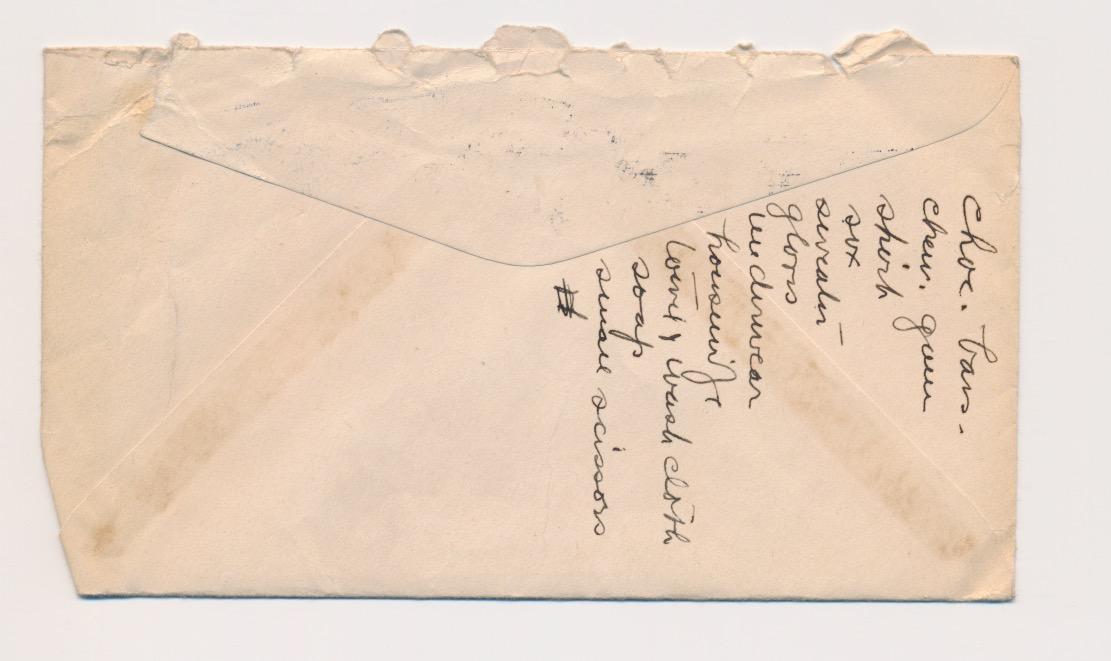 choc. bars.
chew. gum
shirt
sox
sweater
gloves
underwear
housewife
towel & wash cloth
soap
small scissors